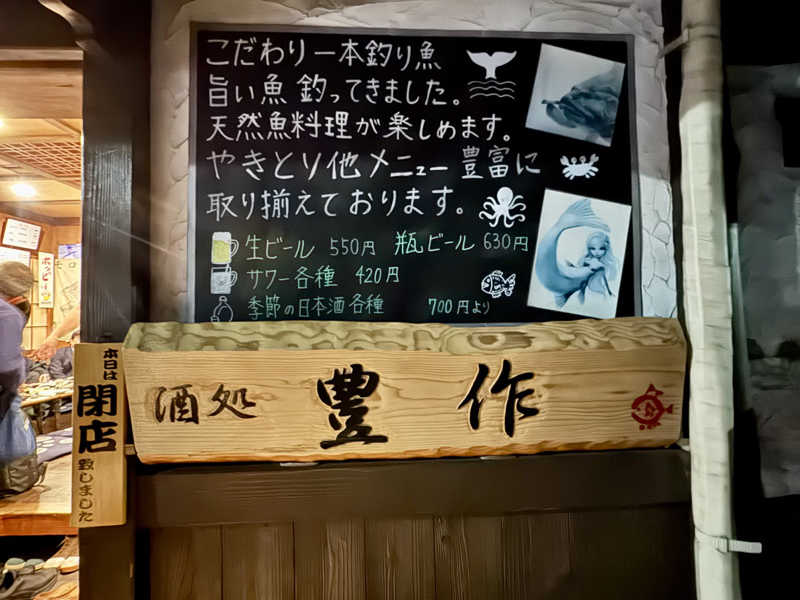 こだわり一本釣り魚
旨い魚 釣ってきました。
天然魚料理が楽しめます。
やきとり他メニュー 豊富に
取り揃えております。
生ビール 550円 瓶ビール 630円
サワー各種 420円
季節の日本酒各種 700円より
酒処 豊作
本日は
閉店
致しました